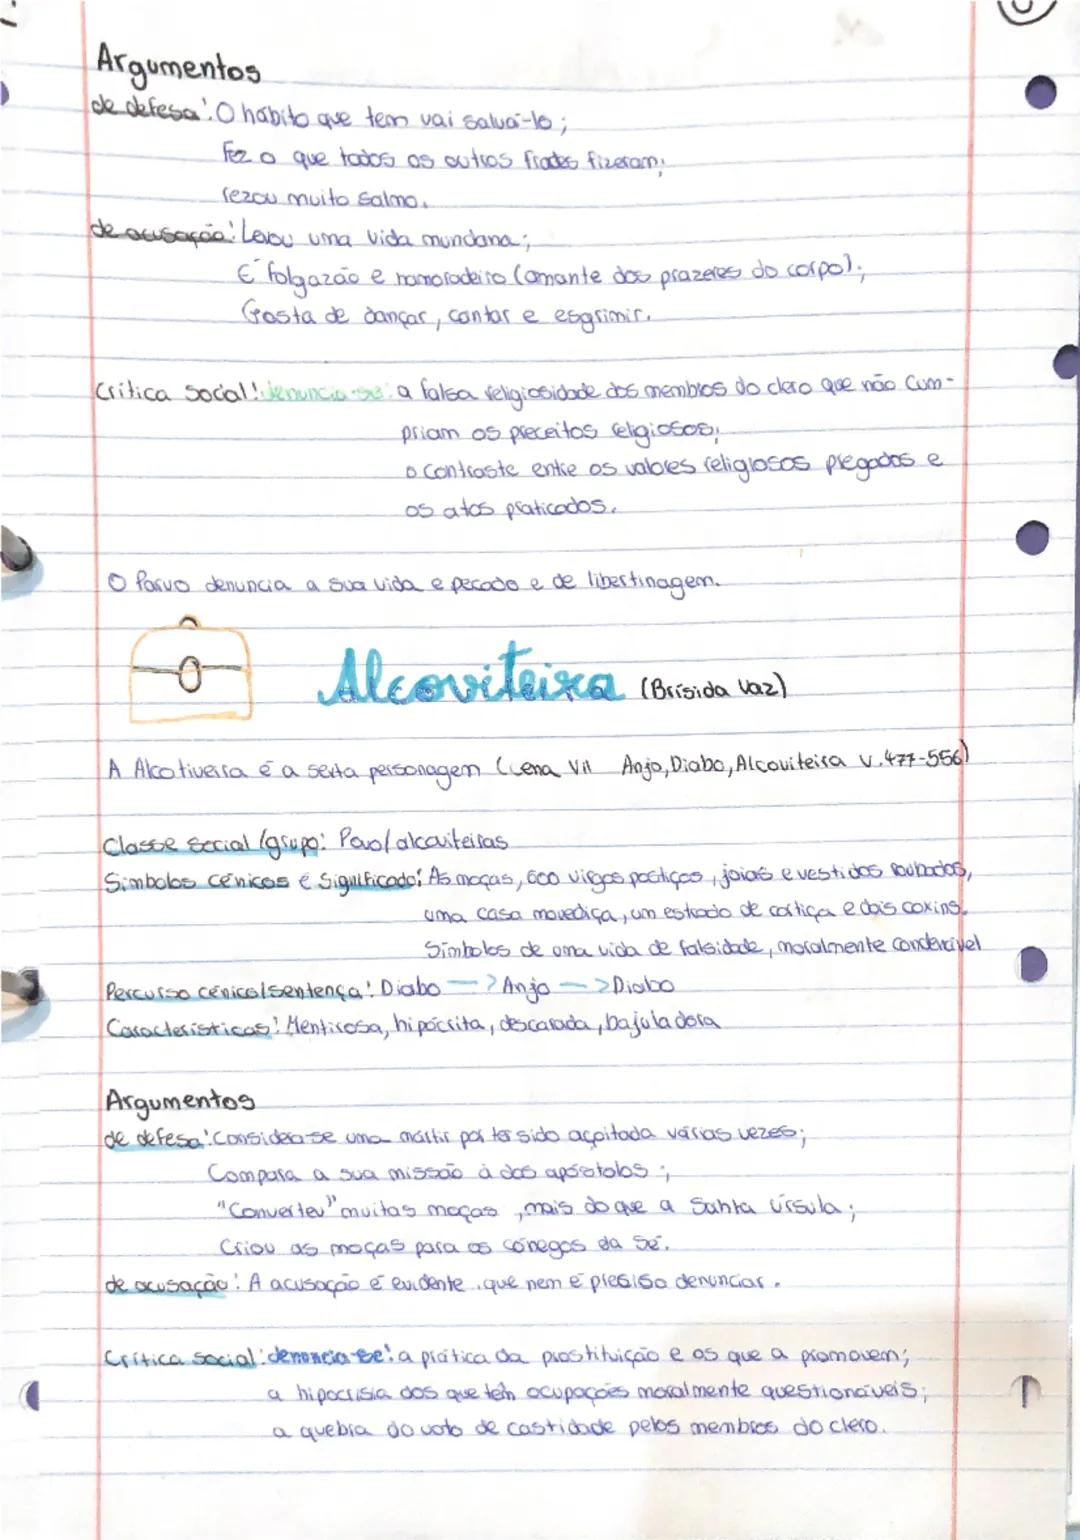 Argumentos
de defesa: O hábito que tem vai salvá-lo;
Fez o que todos os outros frades fizeram;
rezou muito salmo.
de acusação: Levou uma vida mundana;
É folgazão e namoradeiro (amante dos prazeres do corpo);
Gosta de dançar, cantar e esgrimir.
Crítica social: denuncia-se: a falsa religiosidade dos membros do clero que não cum-
priam os preceitos religiosos;
o contraste entre os valores religiosos pregados e
os atos praticados.
O Parvo denuncia a sua vida e pecado e de libertinagem.
Alcoviteira (Brísida Vaz)
A Alcotiveira é a sexta personagem (Cena VII Anjo, Diabo, Alcoviteira v.477-556)
Classe social/grupo: Povo/alcoviteiras
Símbolos cénicos e Significado: As moças, 600 virgos postiços, joias e vestidos roubados,
uma casa movediça, um estrado de cortiça e dois coxins.
Símbolos de uma vida de falsidade, moralmente condenável
Percurso cénico/sentença: Diabo —> Anjo —> Diabo
Características: Mentirosa, hipócrita, descarada, bajuladora
Argumentos
de defesa: Considera-se uma mártir por ter sido açoitada várias vezes;
Compara a sua missão à dos apóstolos;
"Converteu" muitas moças, mais do que a Santa Úrsula;
Criou as moças para os cónegos da Sé.
de acusação: A acusação é evidente que nem é preciso denunciar.
Crítica social: denuncia-se: a prática da prostituição e os que a promovem;
a hipocrisia dos que têm ocupações moralmente questionáveis;
a quebra do voto de castidade pelos membros do clero.